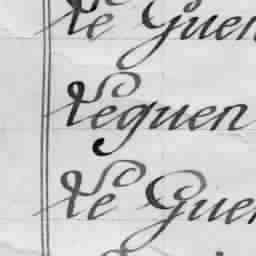 Le Guen
Leguen
Le Guen